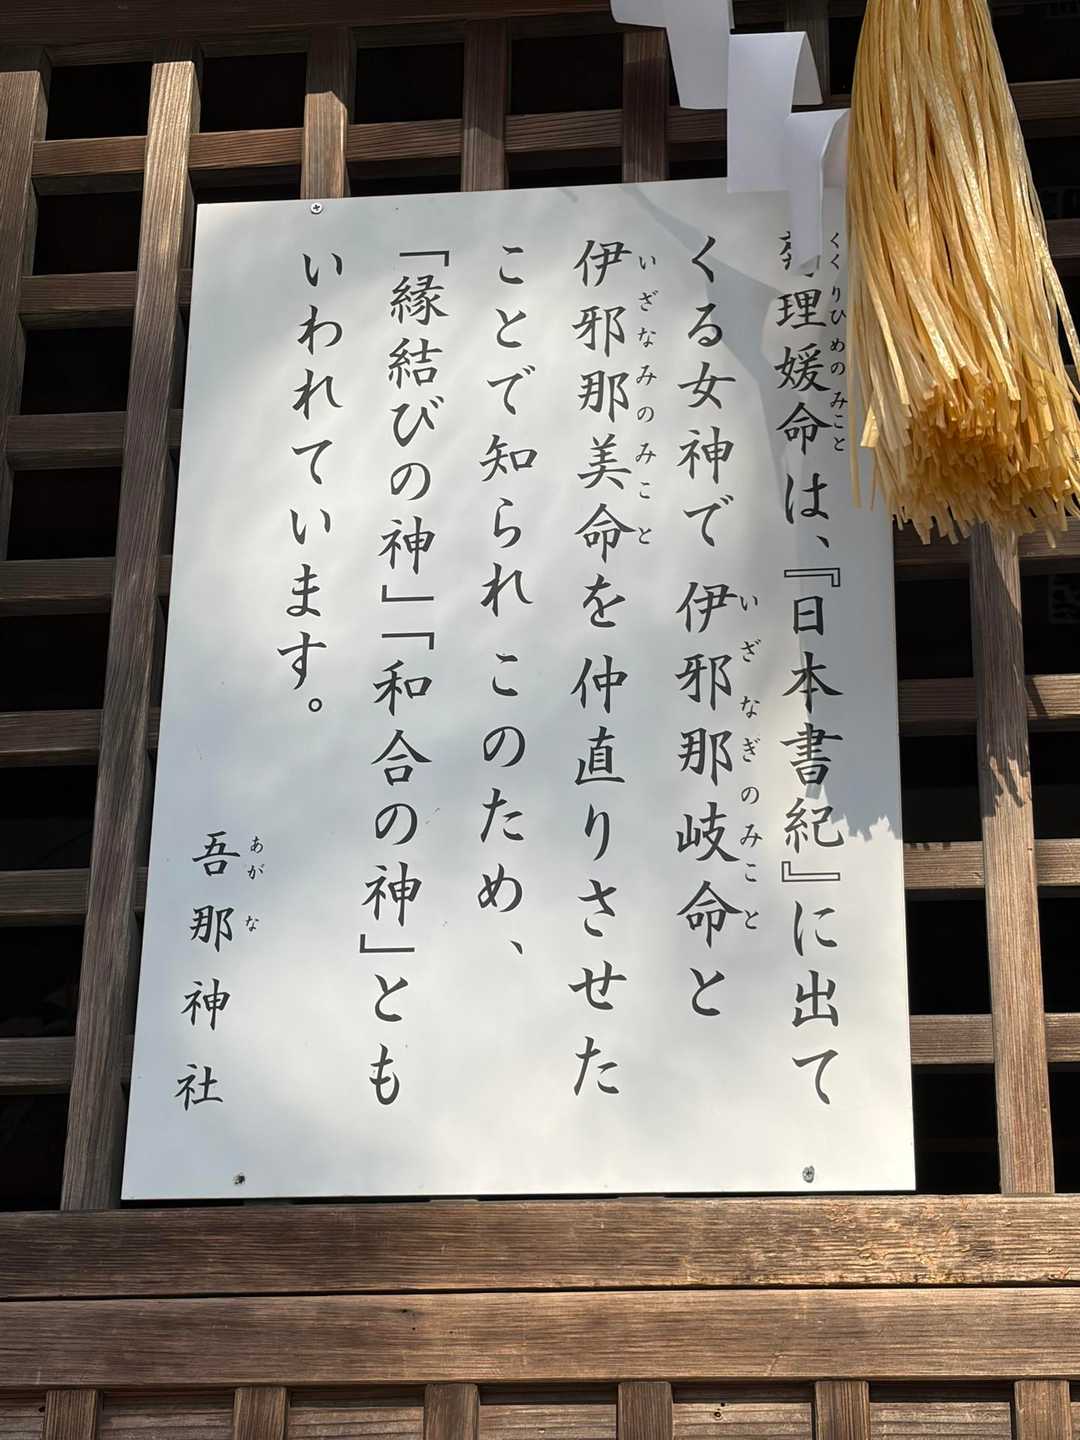 くくりひめのみこと
菊理媛命は、『日本書紀』に出て
いざなぎのみこと
くる女神で 伊邪那岐命と
いざなみのみこと
伊邪那美命を仲直りさせた
ことで知られ このため、
「縁結びの神」「和合の神」とも
いわれています。
あがな
吾那神社